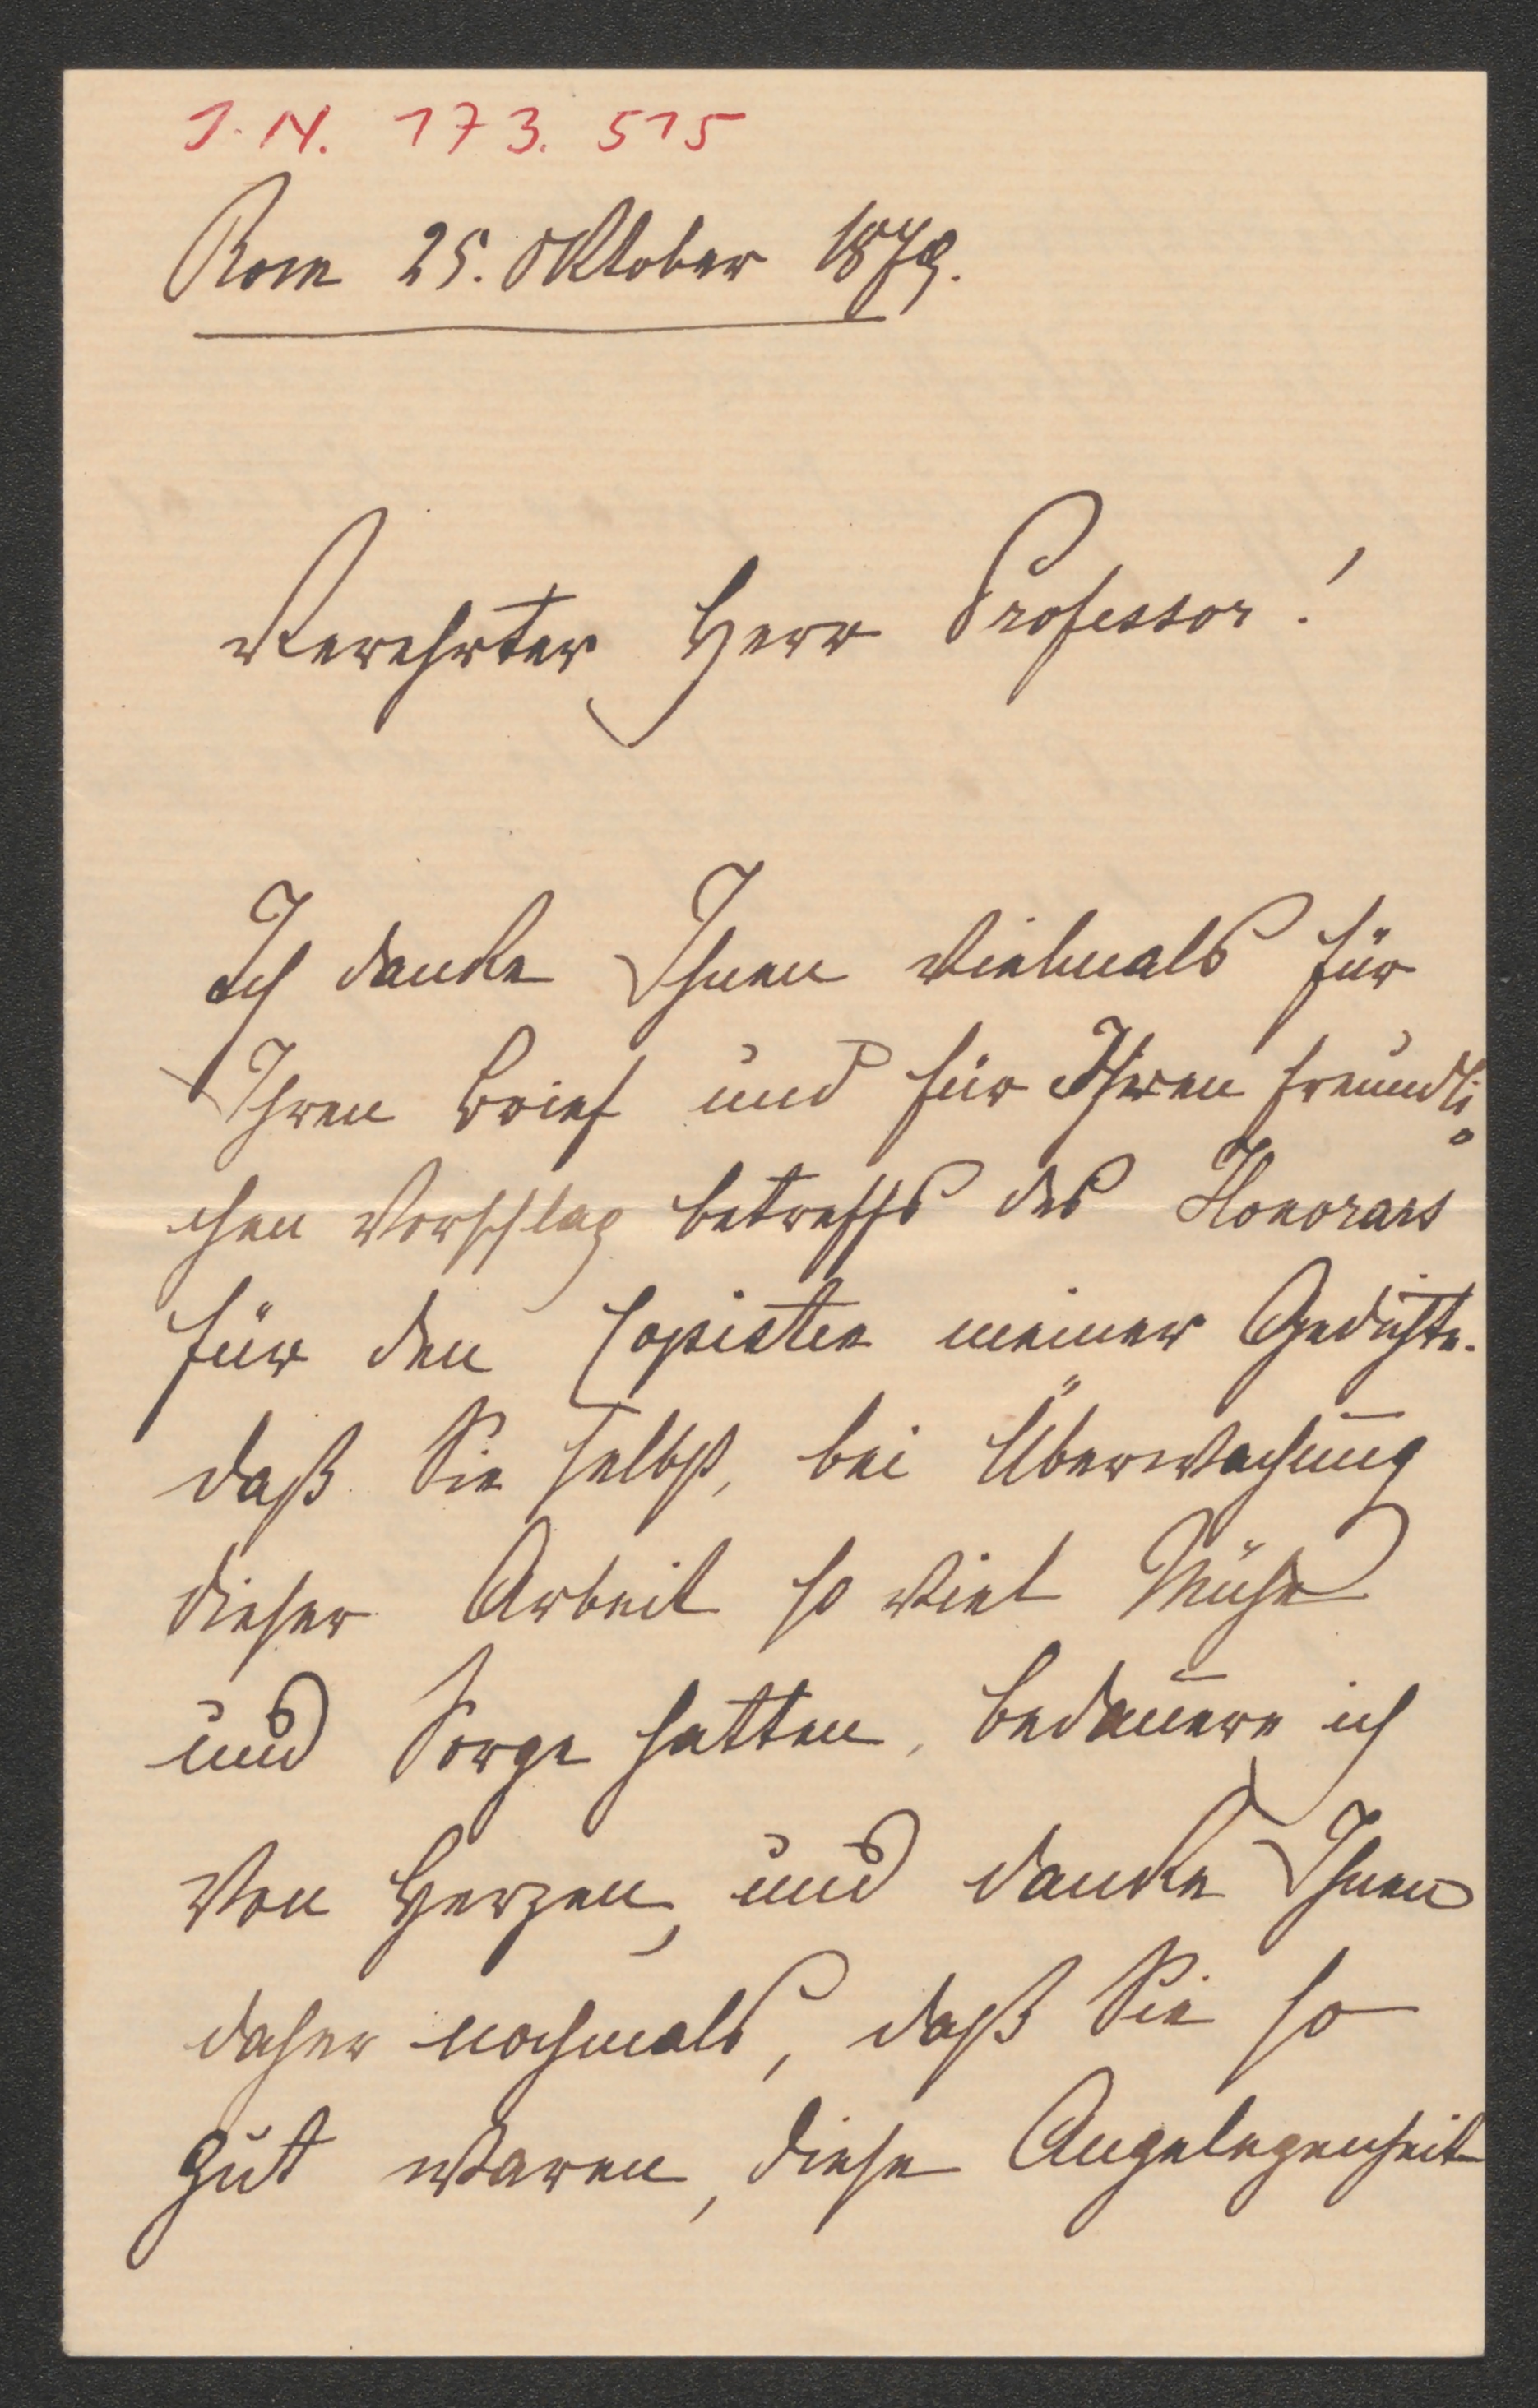 J. N. 173. 515
Rom 25. Oktober 1879.
Verehrter Herr Professor!
Ich danke Ihnen vielmals für
Ihren Brief und für Ihren freundli
chen Vorschlag betreffs des Honorars
für den Copisten meiner Gedichte.
daß Sie selbst, bei Überwachung
dieser Arbeit so viel Mühe
und Sorge hatten, bedauere ich
von Herzen, und danke Ihnen
daher nochmals, daß Sie so
gut waren, diese Angelegenheit